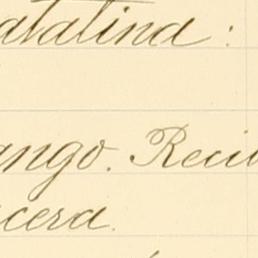 atalina :
ango. Recib
cera.